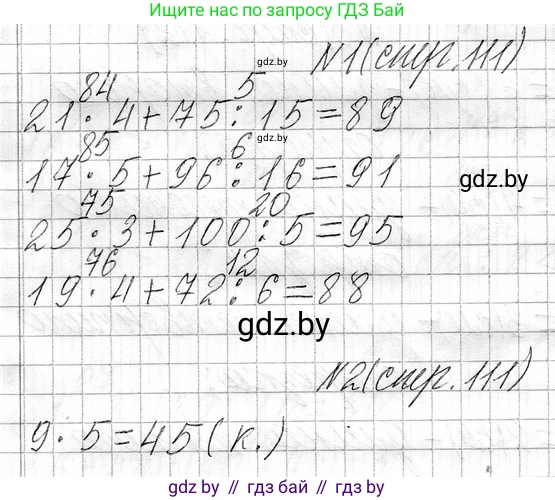 Ищите нас по запросу ГДЗ Бай
gdz.by
N1(стр.111)
84 5
21·4+75:15=89
gdz.by
85 6
17·5+96:16=91
gdz.by
75 20
25·3+100:5=95
76 12
19·4+72:6=88
gdz.by
N2(стр.111)
9·5=45(к.)
gdz.by // гдз бай // gdz.by